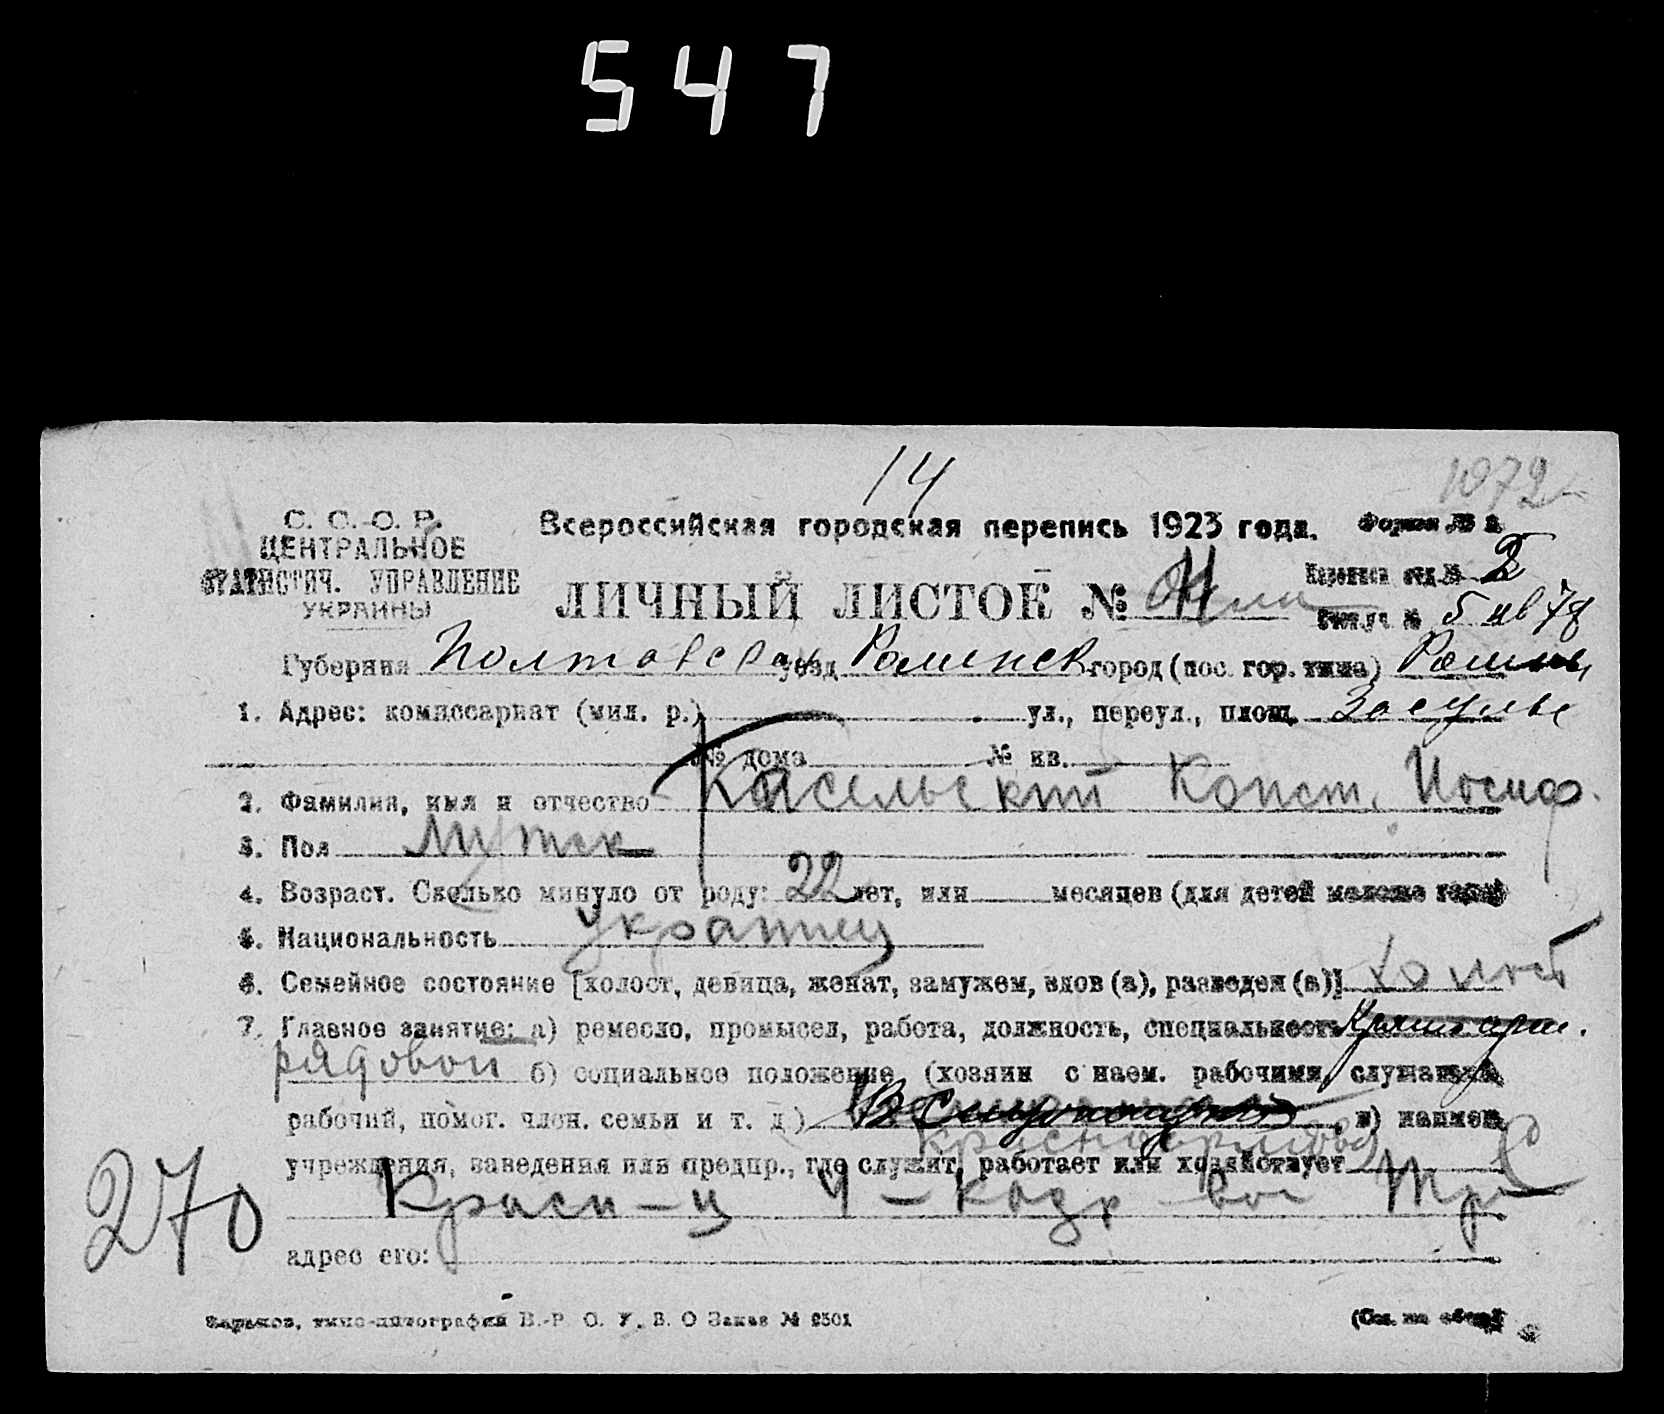 547
14
1072
С. С. С. Р.
ЦЕНТРАЛЬНОЕ
СТАТИСТИЧ. УПРАВЛЕНИЕ
УКРАИНЫ
Всероссийская городская перепись 1923 года.
Форма № 2
ЛИЧНЫЙ ЛИСТОК №
Переписн отд №
5 кв 78
Губерния Полтавская уезд Роменск город (пос. гор. типа) Ромны
1. Адрес: комиссариат (мил. р.) ул., переул., площ. Засулье
№ дома № кв.
2. Фамилия, имя и отчество Касельский Конст. Иосиф.
3. Пол Мужск
4. Возраст. Сколько минуло от роду: 22 лет, или месяцев (для детей моложе года)
5. Национальность украинец
6. Семейное состояние [холост, девица, женат, замужем, вдов (а), разведен (а)] холост
7. Главное занятие: а) ремесло, промысел, работа, должность, специальность
рядовой б) социальное положение (хозяин с наем. рабочими, служащий,
рабочий, помог. член. семьи и т. д.) в) наимен.
красноармеец
учреждения, заведения или предпр., где служит, работает или хозяйствует
Красн-ц 4 - кадр
270
адрес его:
Харьков, типо-литография В.-Р. О. У. В. О Заказ № 2501
(См. на обороте)